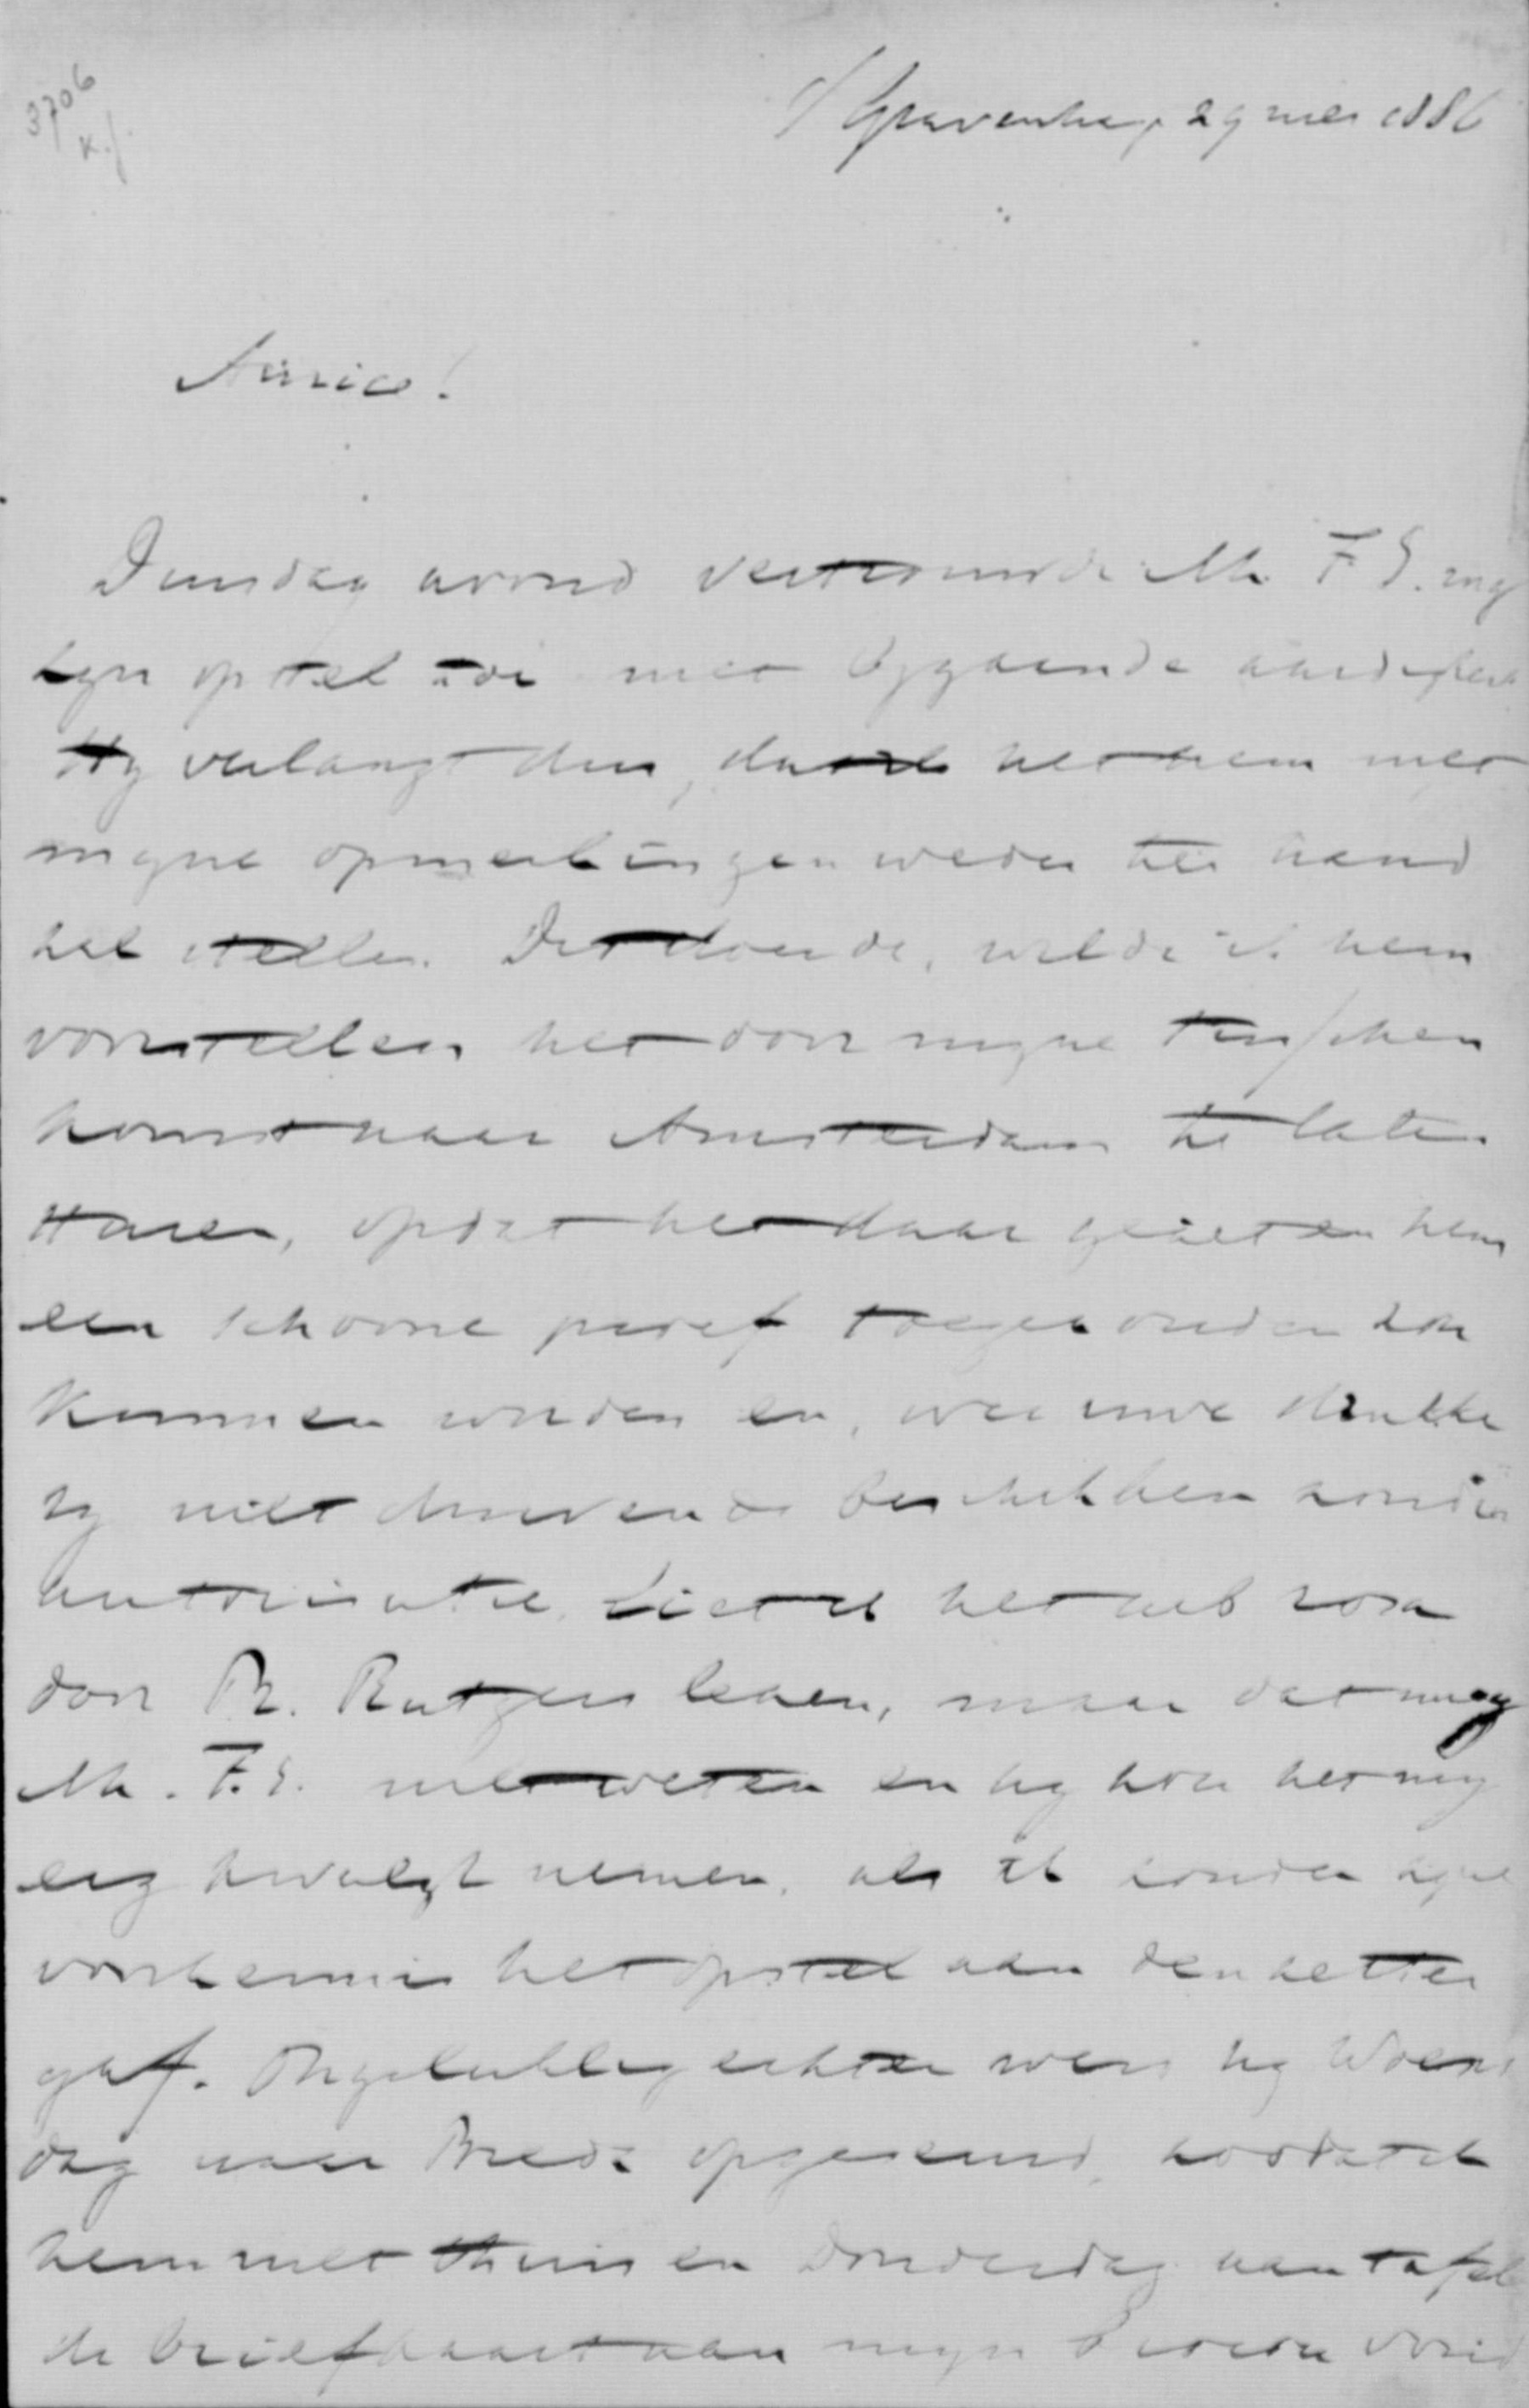 3706
K.f.
s/Gravenhage 29 mei 1886
Amice!
Dinsdag avond vertrouwde Mr. F. S. mij
zijn opstel toe met bijgaande aardigheid
Hij verlangt dus, dat ik het hem met
mijne opmerkingen weder ter hand
zal stellen. Dit doende, wilde ik hem
voorstellen het door mijne tusschen
komst naar Amsterdam te laten
sturen, opdat het daar gezet en hem
een schoone proef toegezonden zou
kunnen worden en, over uwe drukker
hij niet durvende beschikken zonder
autorisatie. Liet ik het sub rosa
door Dr. Rutgers lezen, maar dat mag
Mr. F. S. niet weten en hij zou het mij
erg kwalijk nemen, als ik zonder zijne
voorkennis het opstel aan den zetter
gaf. Ongelukkig echter was hij Woens
dag naar Breda opgezeend, zoodat ik
hem niet thuis en Donderdag aan tafel
de briefkaart aan mijn vond